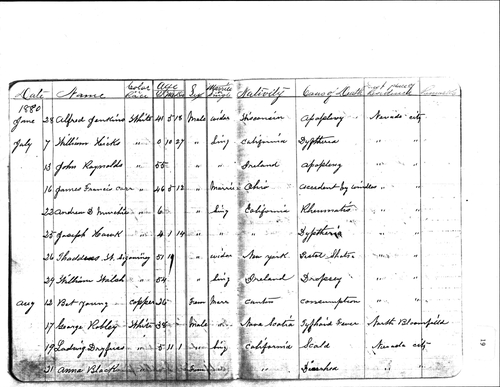 Date Name Color Race Age Sex Married Single Nativity Cause of Death Last place of Residence
1880
June 28 Alfred Jenkins White 41 5 18 Male wider Wisconsin Apoplexy Nevada city
July 7 William Hicks " 0 10 27 " Sing california Dyptheria "
13 John Raynolds " 55 " Ireland Apoplexy "
16 James Francis carr " 46 5 12 " Married Ohio accident by "
23 Andrew B " 6 " Sing California Rheumatic "
25 Joseph Hawk " 4 1 14 " " Dyptheria "
26 Thaddeus " 51 " wider New york Pistol Shots "
29 William Walsh " 54 " Sing Ireland Dropsey "
Aug 12 But Young copper 36 Fem Marr canton consumption "
17 George Robley White 38 Male " Nova Scotia Typhoid Fever North Bloomfield
19 Ludwig Dreyfuss " 5 11 1 " Sing california Scald Nevada city
21 Anna Black " Fem " " Diarrhea "
19